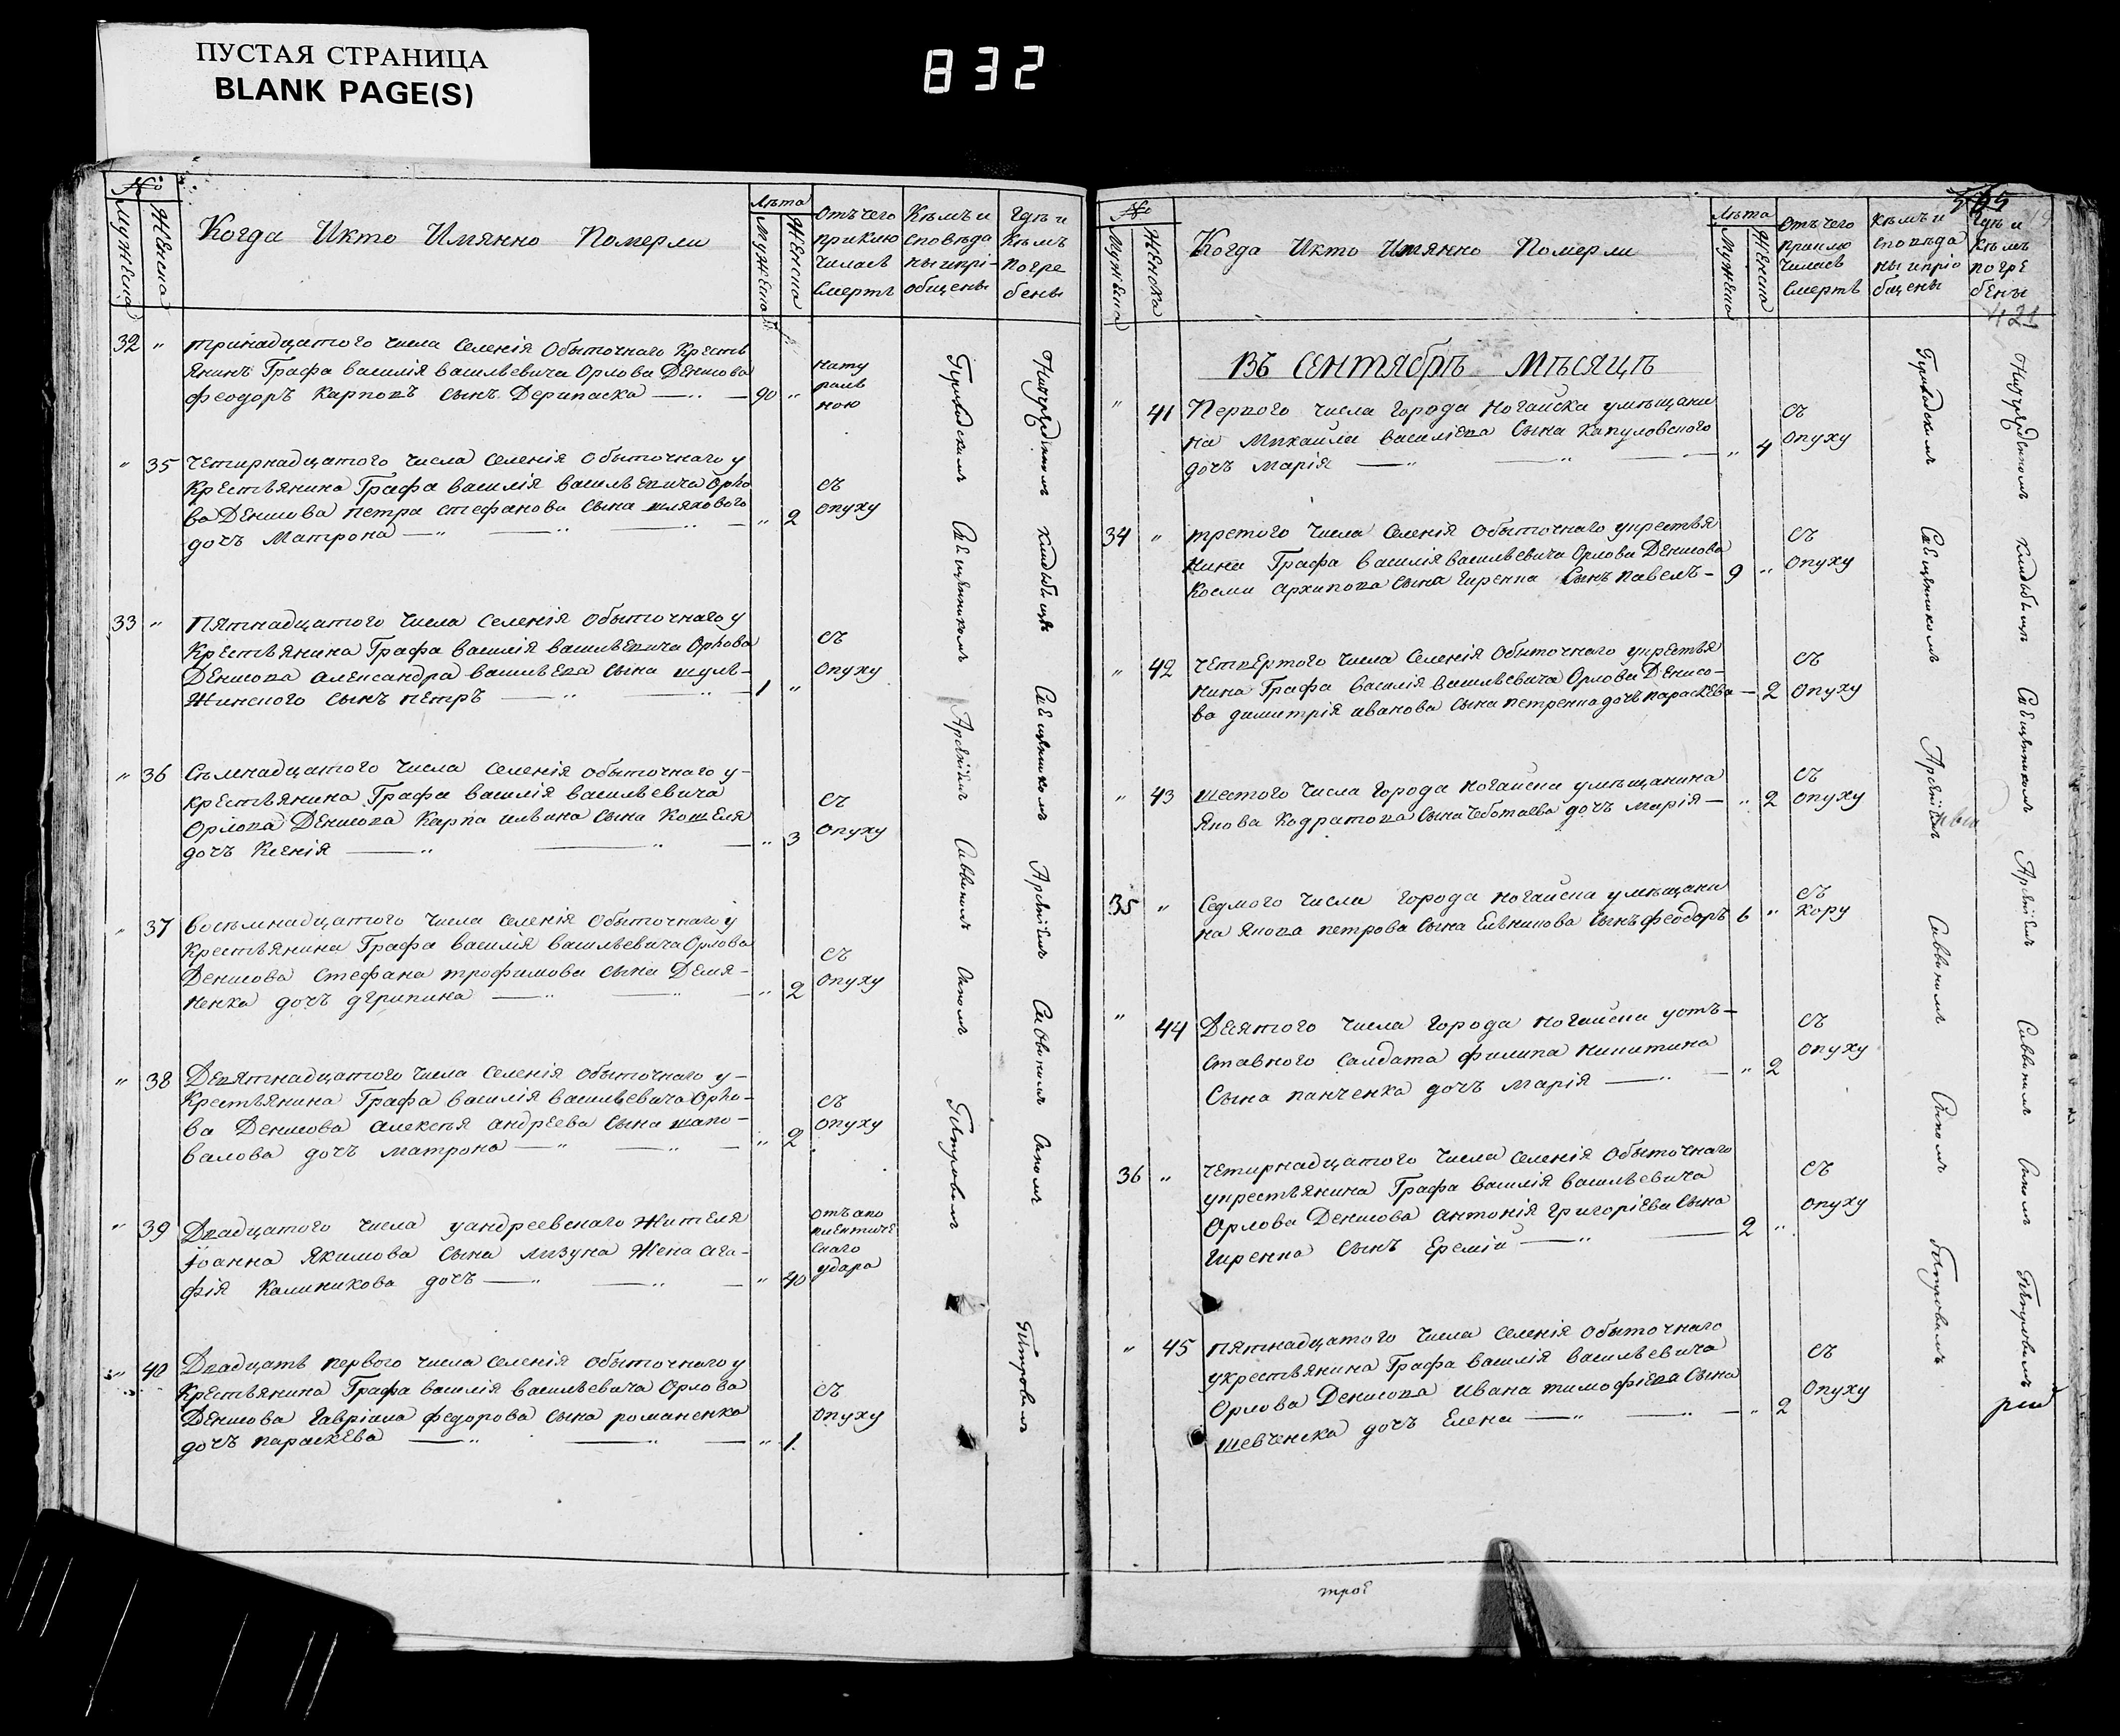 ПУСТАЯ СТРАНИЦА
BLANK PAGE(S)
832
№
Мужеска
Женска
Когда Икто Имянно Померли
Лѣта
Мужеска
Женска
Отъ чего
приклю
чилась
Смерть
Кѣмъ и
сповѣда
ны ипрі-
общены
Гдѣ и
Кѣмъ
погре
бены
32 " тринадцатого числа селенія Обыточнаго Кресть
янинъ Графа василія васильевича Орлова Денисова
феодоръ Карповъ сынъ Дерипаска — 90 "
нату
раль
ною
" 35 четирнадцатого числа селенія обыточнаго у
Крестьянина Графа василія васильевича Орло
ва Денисова петра стефанова сына шляхового
дочъ Матрона — " 2
съ
опуху
33 " Пятнадцатого числа селенія обыточнаго у
Крестьянина Графа василія васильевича Орлова
Денисова александра васильева сына шуль-
жинского сынъ петръ — 1 "
съ
опуху
" 36 Съмнадцатого числа селенія обыточнаго у-
крестьянина Графа василія васильевича
Орлова Денисова Карпа ильина сына Кошеля
дочъ Ксенія — " 3
съ
опуху
" 37 восъмнадцатого числа селенія обыточнаго у
Крестьянина Графа василія васильевича Орлова
Денисова стефана трофимова сына Демя-
ненка дочъ агрипина — " 2
съ
опуху
" 38 Девятнадцатого числа селенія обыточнаго у-
Крестьянина Графа василія васильевича Орло-
ва Денисова алексея андреева сына шапо-
валова дочъ матрона — " 2
съ
опуху
" 39 Двадцатого числа уандреевскаго жителя
Іоанна Якимова сына лизуна жена ага-
фія Калиникова дочъ — " 40
отъ апо
плектиче
скаго
удара
" 40 Двадцать первого числа селенія обыточнаго у
Крестьянина Графа василія васильевича Орлова
Денисова гавріила федорова сына романенка
дочъ параскева — " 1.
съ
опуху
Священникомъ Арсеніемъ Саввинымъ
кладбищѣ Священникомъ Арсеніемъ
№
Мужеска
Женска
Когда Икто Имянно Померли
Лѣта
Мужеска
Женска
Отъ чего
приклю
чилась
Смерть
Кѣмъ и
сповѣда
ны ипріо
бщены
Гдѣ и
Кѣмъ
погре
бены
421
Въ Сентябрѣ Мѣсяцѣ
" 41 Первого числа города ногайска умѣщани
на Михаила василіева сына капуловского
дочъ Марія — " 4
съ
опуху
34 " третого числа селенія обыточнаго укрестья
нина Графа василія васильевича Орлова Денисова
Космы архипова сына гиренка сынъ павелъ — 9 "
съ
опуху
" 42 четвертого числа селенія обыточнаго укрестья
нина Графа василія васильевича Орлова Денисо-
ва димитрія иванова сына петренка дочъ параскева — 2
съ
опуху
" 43 шестого числа города ногайска умѣщанина
Якова Кодратова сына чеботаева дочъ Марія — " 2
съ
опуху
35 " Седмого числа города ногайска умѣщани
на Якова петрова сына Евникова сынъ феодоръ 6 "
съ
кору
" 44 Девятого числа города ногайска уотъ-
ставного салдата филипа никитина
сына панченка дочъ Марія — " 2
съ
опуху
36 " четирнадцатого числа селенія обыточнаго
укрестьянина Графа василія васильевича
Орлова Денисова антонія григоріева сына
гиренка сынъ Еремій — 2 "
съ
опуху
" 45 пятнадцатого числа селенія обыточнаго
укрестьянина Графа василія васильевича
Орлова Денисова ивана тимофіева сына
шевченка дочъ Елена — " 2
съ
опуху
Священникомъ
кладбищѣ Священникомъ Арсеніемъ
трог